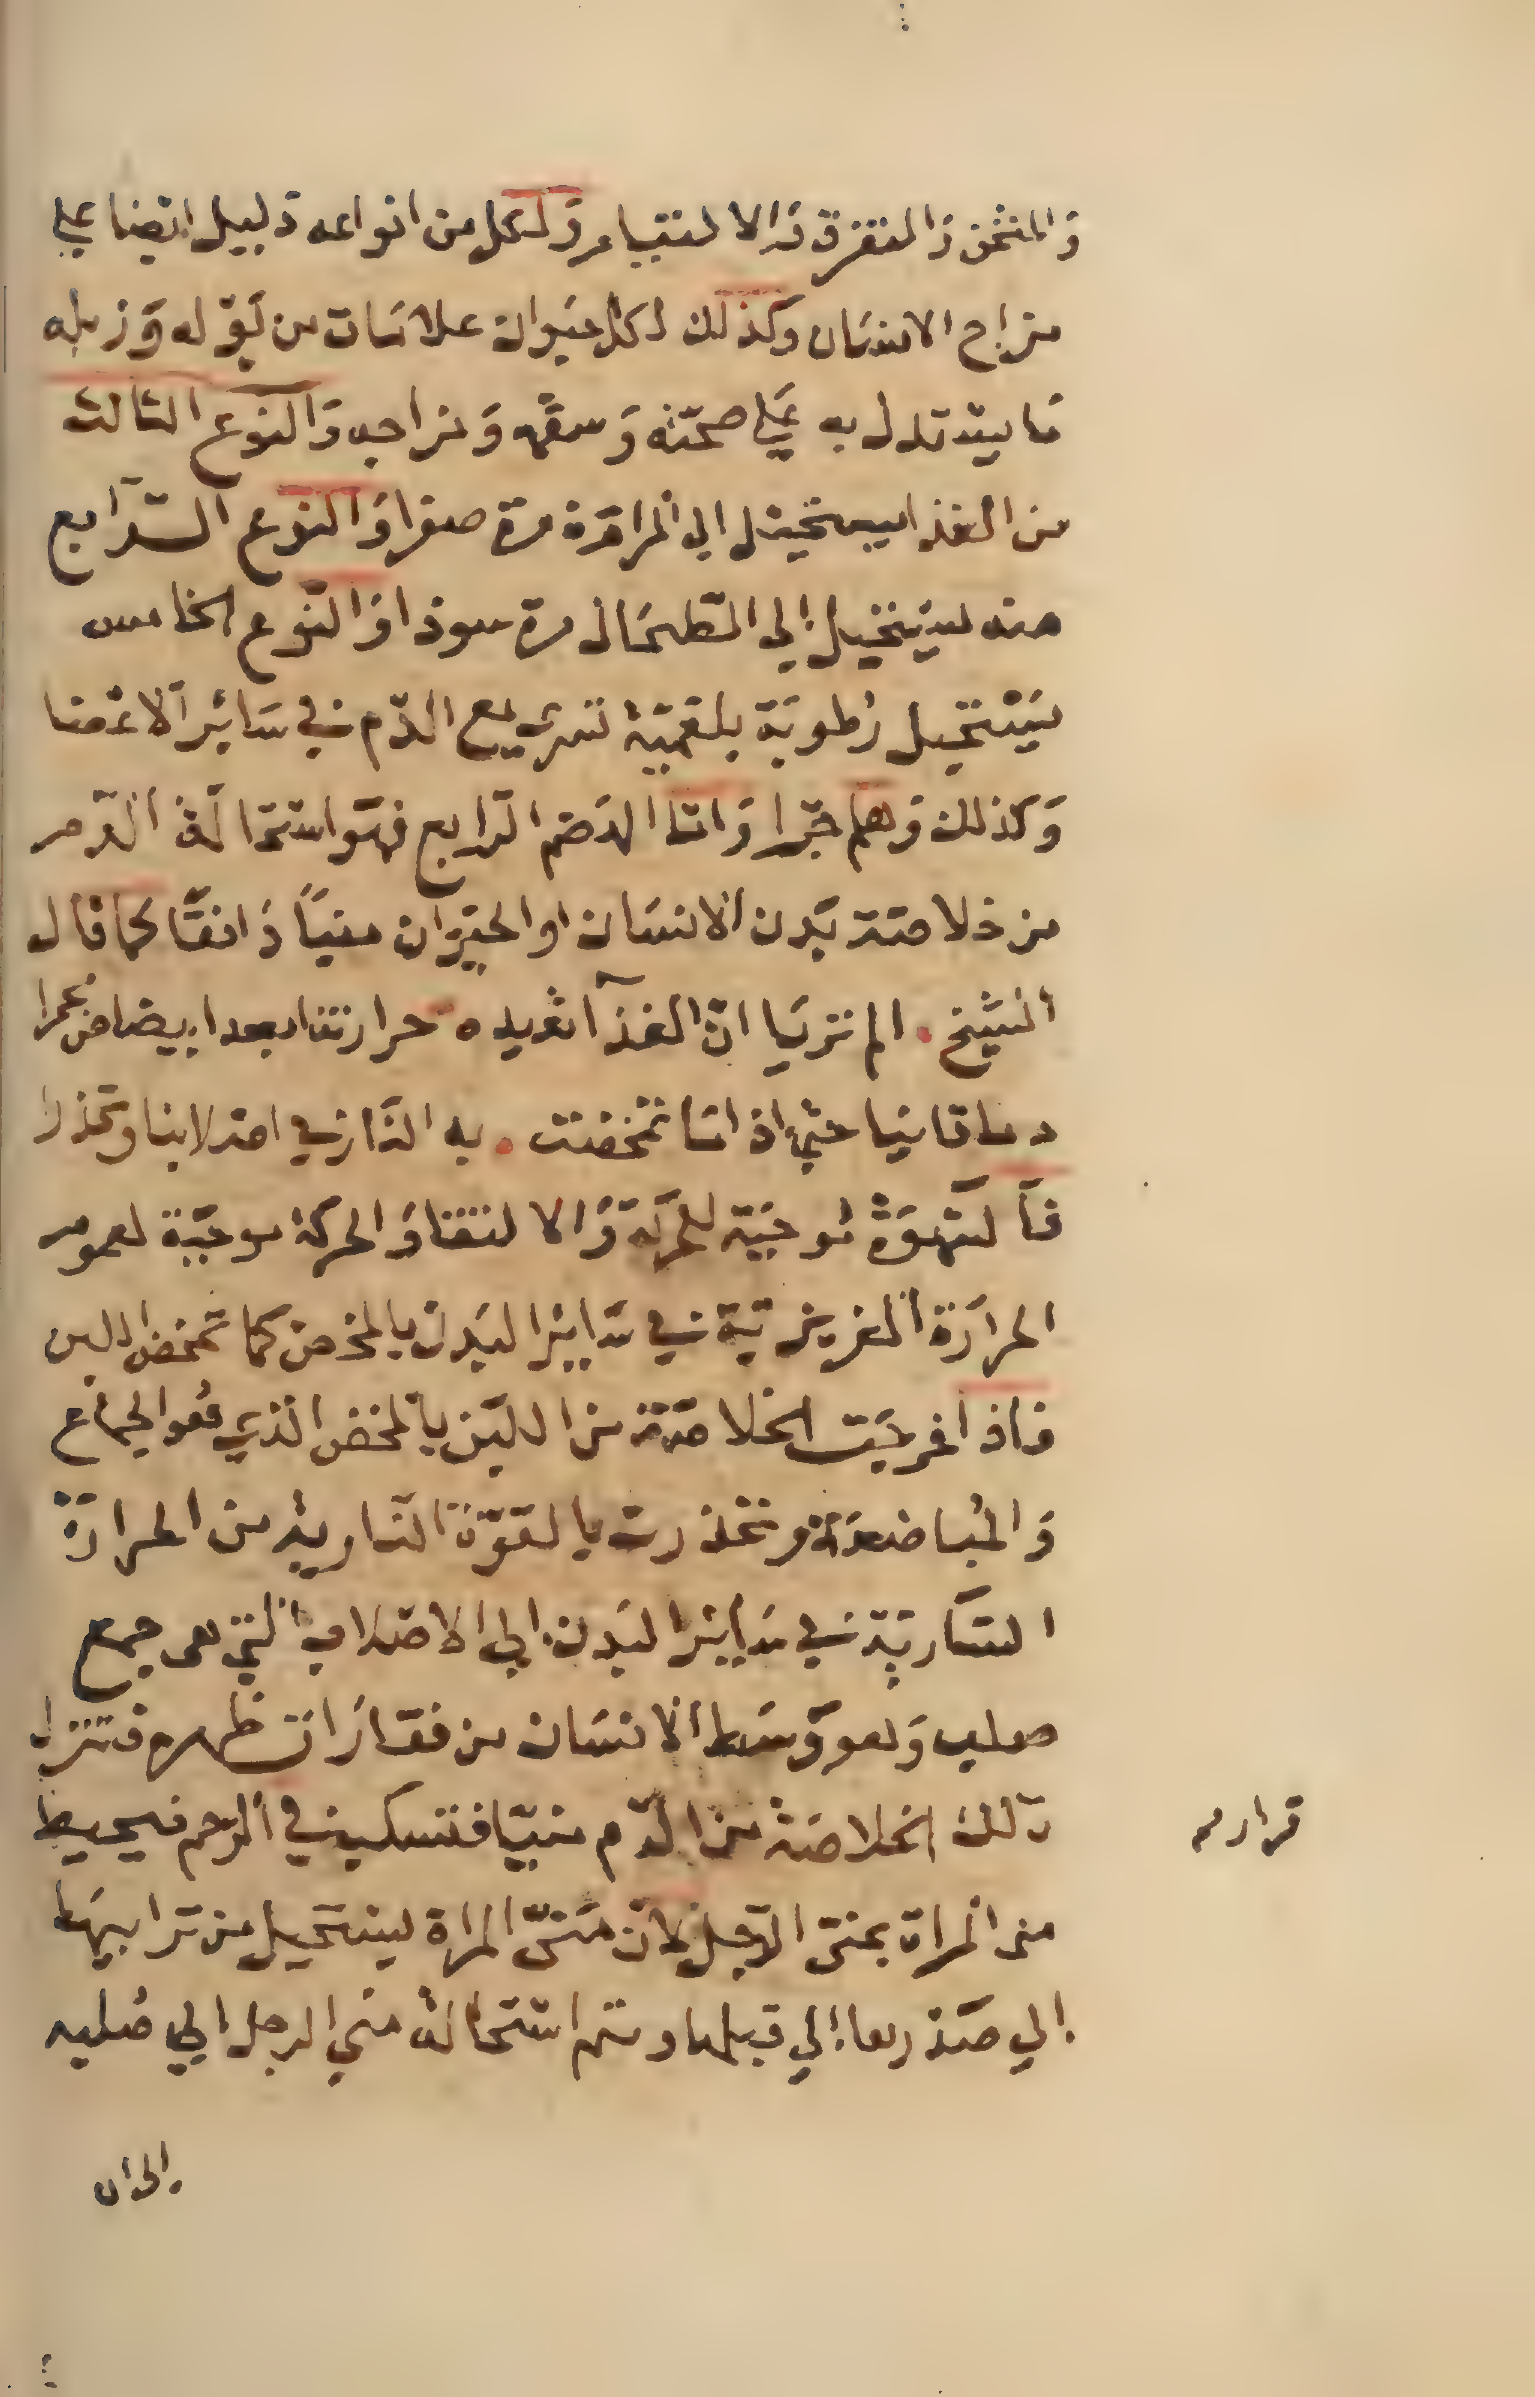 والمنخن والمتفرق والالتيام ولكل من انواعه دليل ايضا علي
مزاج الانسان وكذلك لكل حيوان علامات من بوله وزبله
ما يستدل به علي صحته وسقمه ومزاجه والنوع الثالث
من الغذا يستحيل الي المرارة مرة صفرا والنوع الرابع
منه يستحيل الي الطحال مرة سودا والنوع الخامس
يستحيل رطوبة بلغمية تسري مع الدم في سائر الاعضا
وكذلك وهلم جرا واما الهضم الرابع فهو استحالة الدم
من خلاصة بدن الانسان او الحيوان منياً دافقا كما قال
الشيخ . الم تريا ان الغذا تعيده حرارتنا بعد ابيضاض محمرا
دما قانيا حتي اذا ما تمخضت . به النار في اصلابنا وتحدرا
فالشهوة موجبة للحركة والالتقا والحركة موجبة لعموم
الحرارة الغريزية في سائر البدن بالمخض كما تمخض اللبن
فاذا خرجت الخلاصة من اللبن بالمخض الذي هو الجماع
والمباضعة وتحدرت بالقوة النارية من الحرارة
السارية في سائر البدن الي الاصلاب التي هي جمع
صلب وهو وسط الانسان من فقارات ظهره فتنزل
تلك الخلاصة من الدم منيا فتسكن في الرحم فيحيط
مني المراة بمني الرجل لان مني المراة يستحيل من ترايبها
الي صدرها الي قبلها وثم استحالة مني الرجل الي صلبه
الي ان
قرار